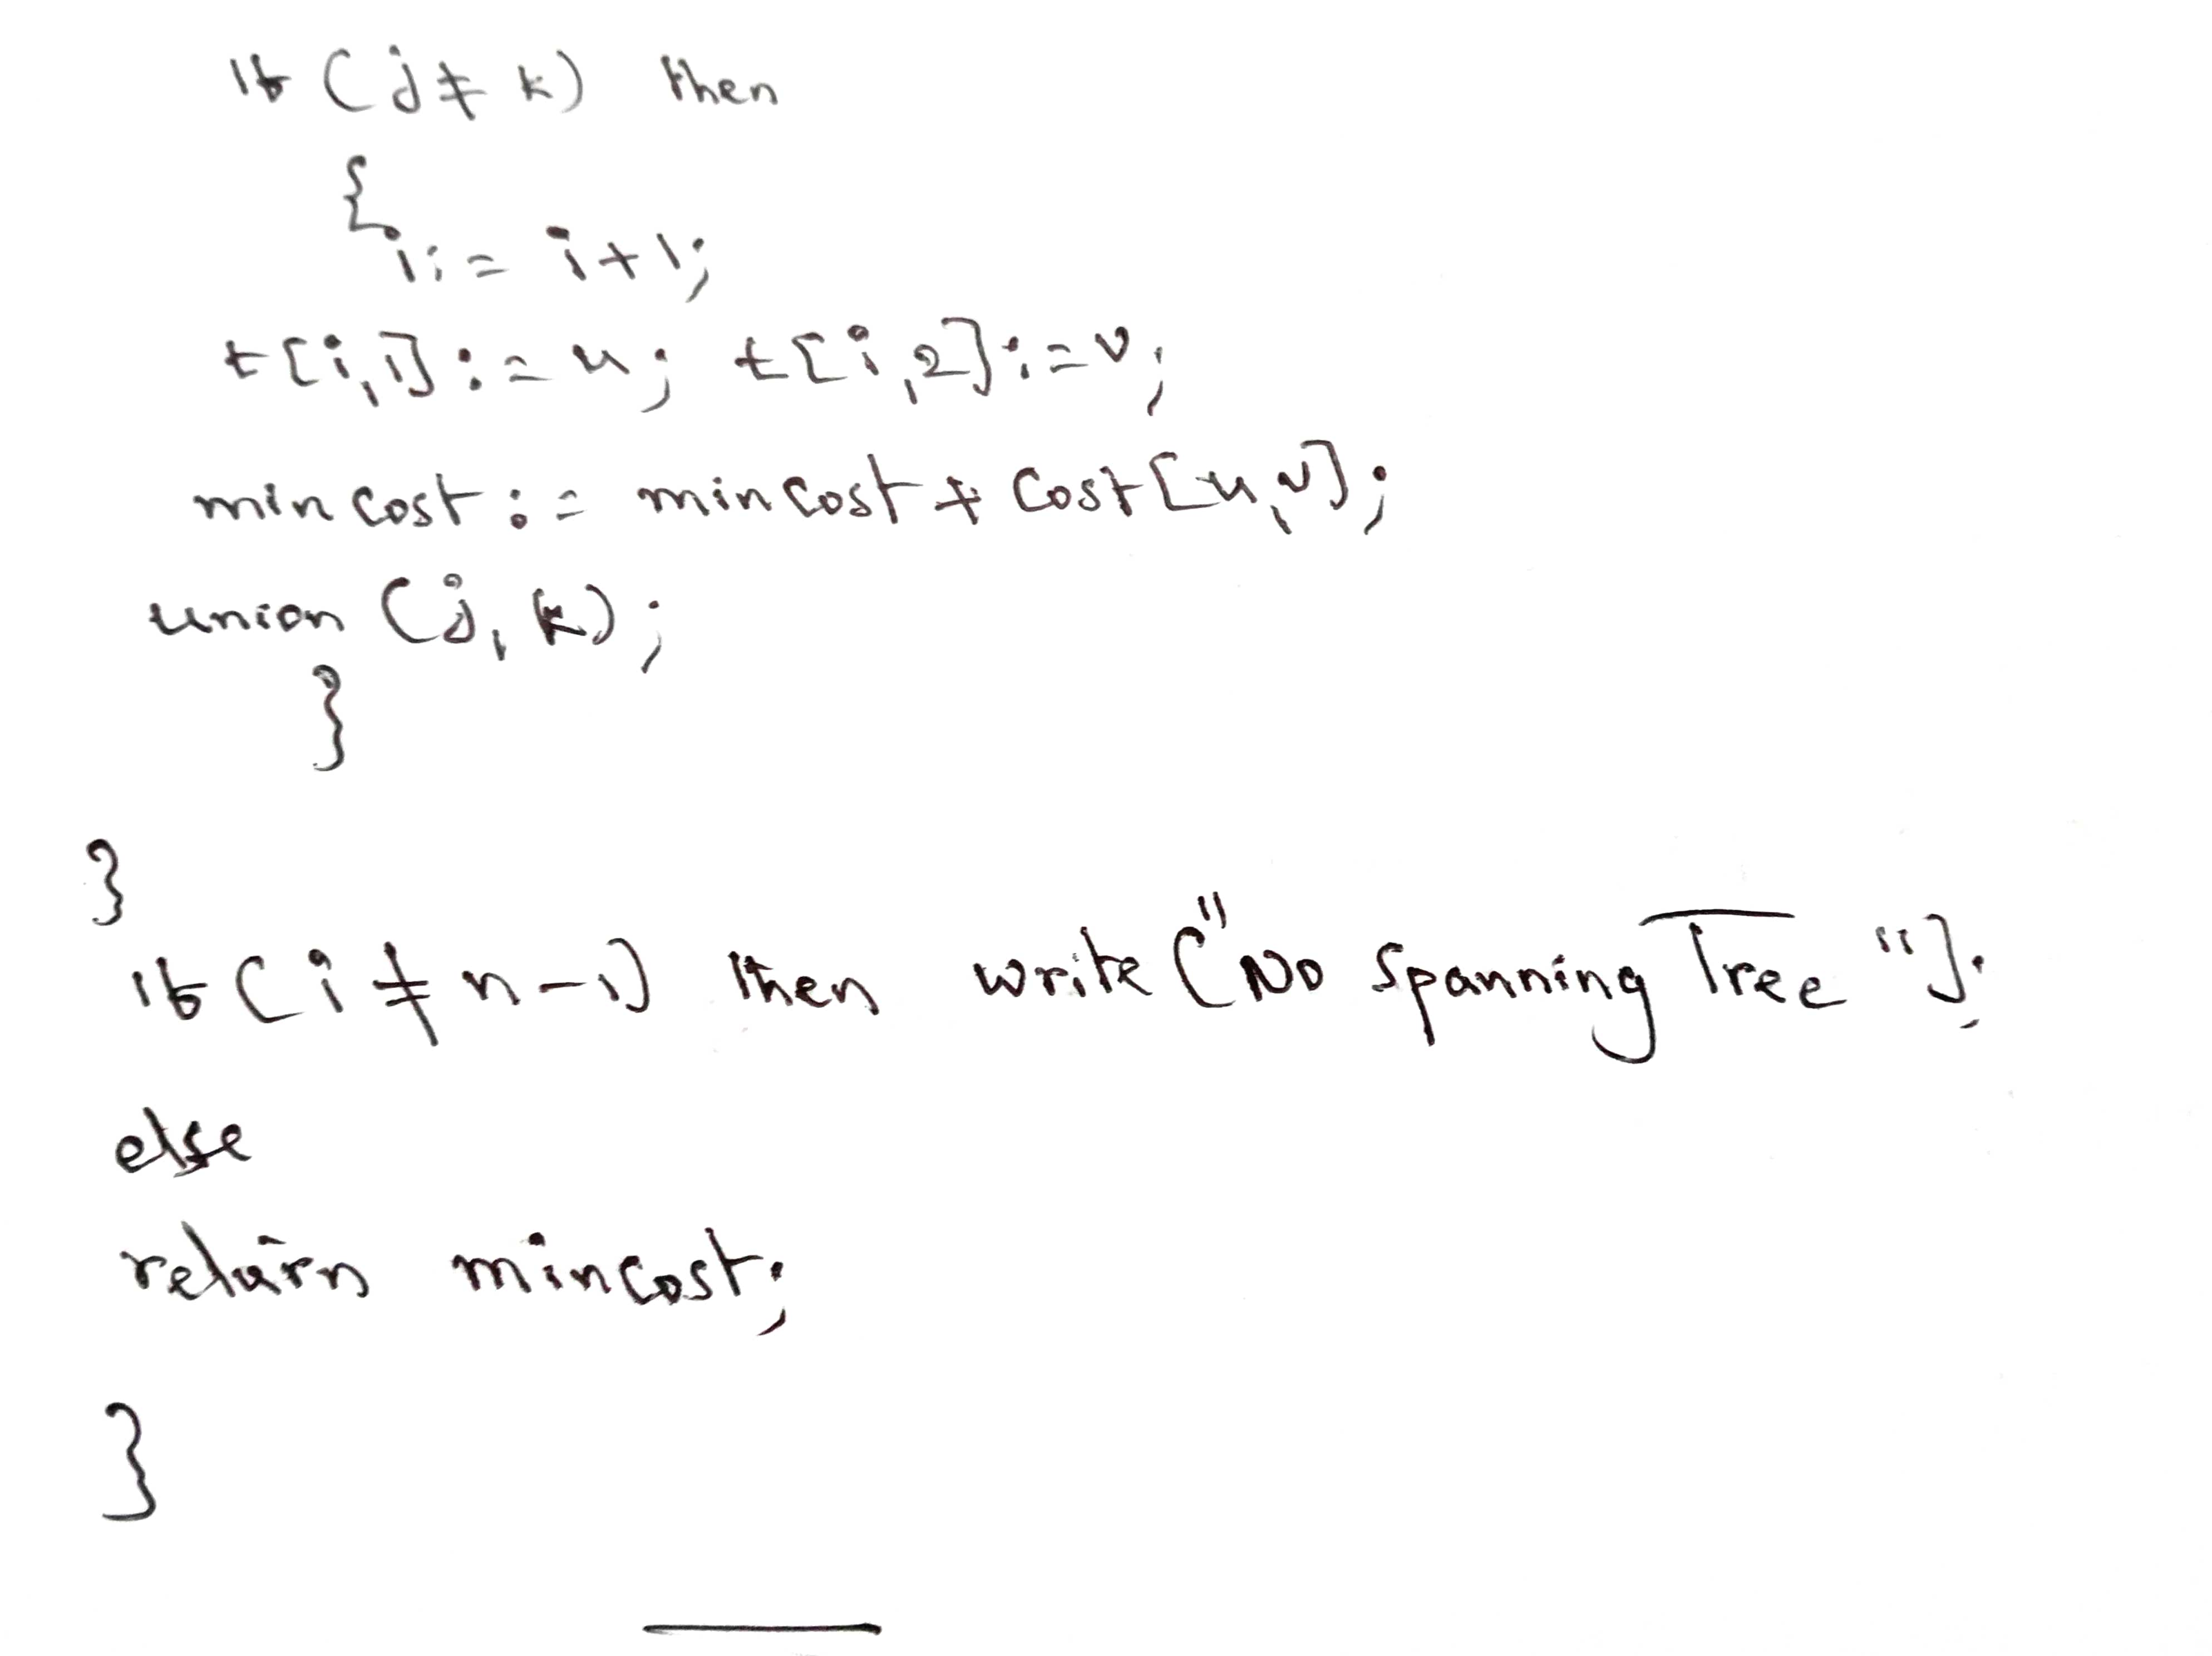 If (j ≠ k) then
{
i := i+1;
t[i,1] := u; t[i,2] := v;
mincost := mincost + Cost[u,v];
union (j, k);
}
}
If (i ≠ n-1) then write ("No Spanning Tree");
else
return mincost;
}